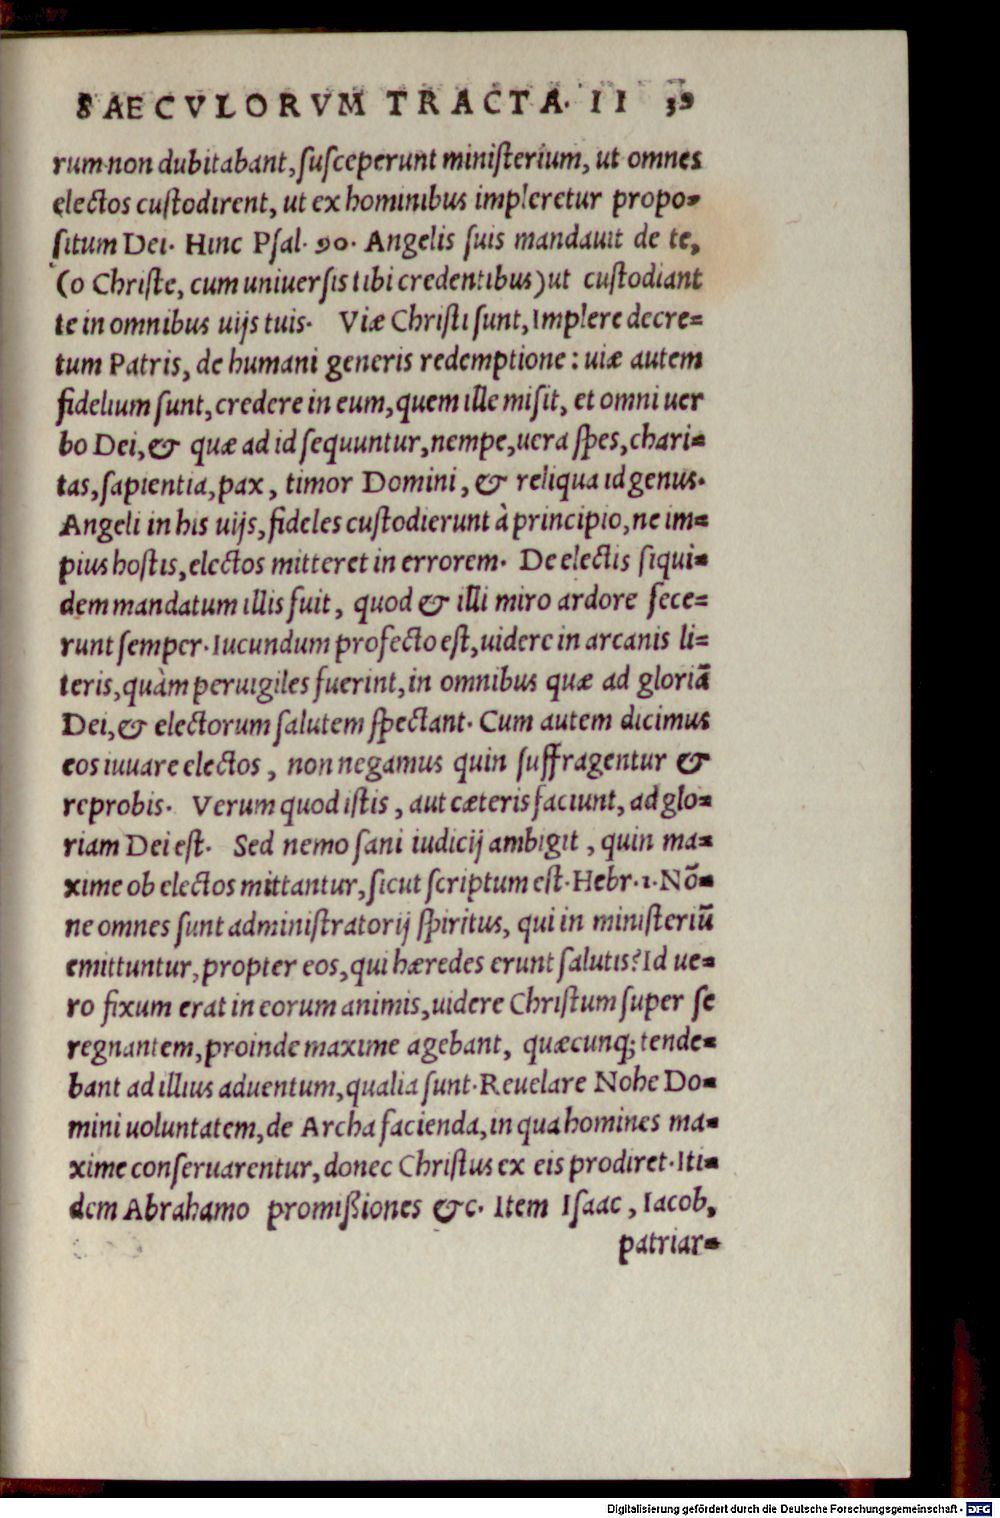 SAECVLORVM TRACTA. II 39
rum non dubitabant, ſuſceperunt miniſterium, ut omnes
electos cuſtodirent, ut ex hominibus impleretur propo-
ſitum Dei. Hinc Pſal. 90. Angelis ſuis mandauit de te,
(o Chriſte, cum uniuerſis tibi credentibus) ut cuſtodiant
te in omnibus uijs tuis. Viæ Chriſti ſunt, Implere decre=
tum Patris, de humani generis redemptione: uiæ autem
fidelium ſunt, credere in eum, quem ille miſit, et omni uer
bo Dei, & quæ ad id ſequuntur, nempe, uera ſpes, chari=
tas, ſapientia, pax, timor Domini, & reliqua id genus.
Angeli in his uijs, fideles cuſtodierunt à principio, ne im=
pius hoſtis, electos mitteret in errorem. De electis ſiqui=
dem mandatum illis fuit, quod & illi miro ardore fece=
runt ſemper. Iucundum profecto eſt, uidere in arcanis li=
teris, quàm peruigiles fuerint, in omnibus quæ ad gloriã
Dei, & electorum ſalutem ſpectant. Cum autem dicimus
eos iuuare electos, non negamus quin ſuffragentur &
reprobis. Verum quod iſtis, aut cæteris faciunt, ad glo=
riam Dei eſt. Sed nemo ſani iudicij ambigit, quin ma=
xime ob electos mittantur, ſicut ſcriptum eſt. Hebr. 1. Nõ=
ne omnes ſunt adminiſtratorij ſpiritus, qui in miniſteriũ
emittuntur, propter eos, qui hæredes erunt ſalutis? Id ue=
ro fixum erat in eorum animis, uidere Chriſtum ſuper ſe
regnantem, proinde maxime agebant, quæcunq; tende=
bant ad illius aduentum, qualia ſunt. Reuelare Nohe Do=
mini uoluntatem, de Archa facienda, in qua homines ma=
xime conſeruarentur, donec Chriſtus ex eis prodiret. Iti=
dem Abrahamo promißiones &c. Item Iſaac, Iacob,
patriar=
Digitalisierung gefördert durch die Deutsche Forschungsgemeinschaft - DFG